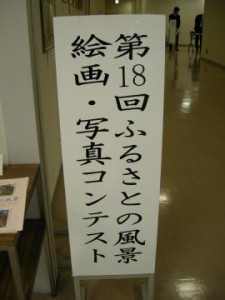 第18回ふるさとの風景
絵画・写真コンテスト